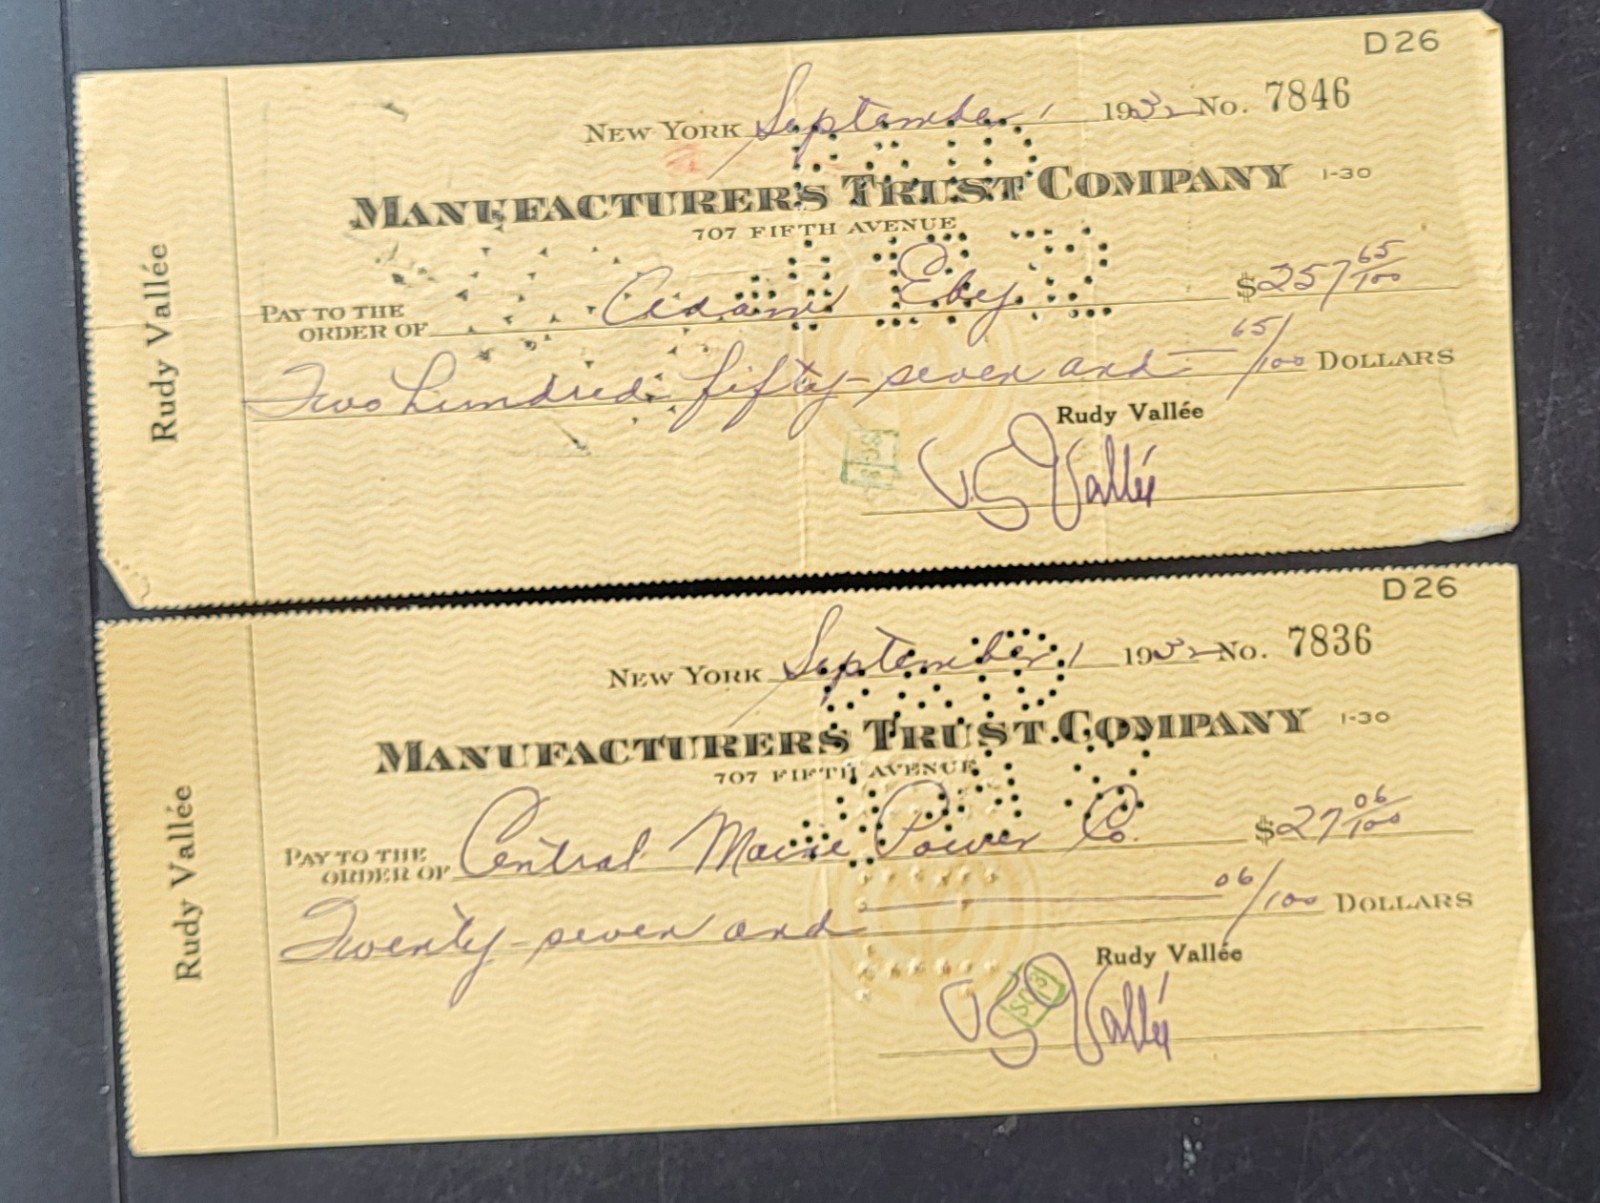 D26
NEW YORK September 1 1932 No. 7846
MANUFACTURERS TRUST COMPANY 1-30
707 FIFTH AVENUE
PAY TO THE ORDER OF Adam Eby $257 65/100
Two hundred fifty-seven and 65/100 DOLLARS
Rudy Vallée
Rudy Vallée
Vallée
D26
NEW YORK September 1 1932 No. 7836
MANUFACTURERS TRUST COMPANY 1-30
707 FIFTH AVENUE
PAY TO THE ORDER OF Central Maine Power Co. $27 06/100
Twenty-seven and 06/100 DOLLARS
Rudy Vallée
Rudy Vallée
Vallée